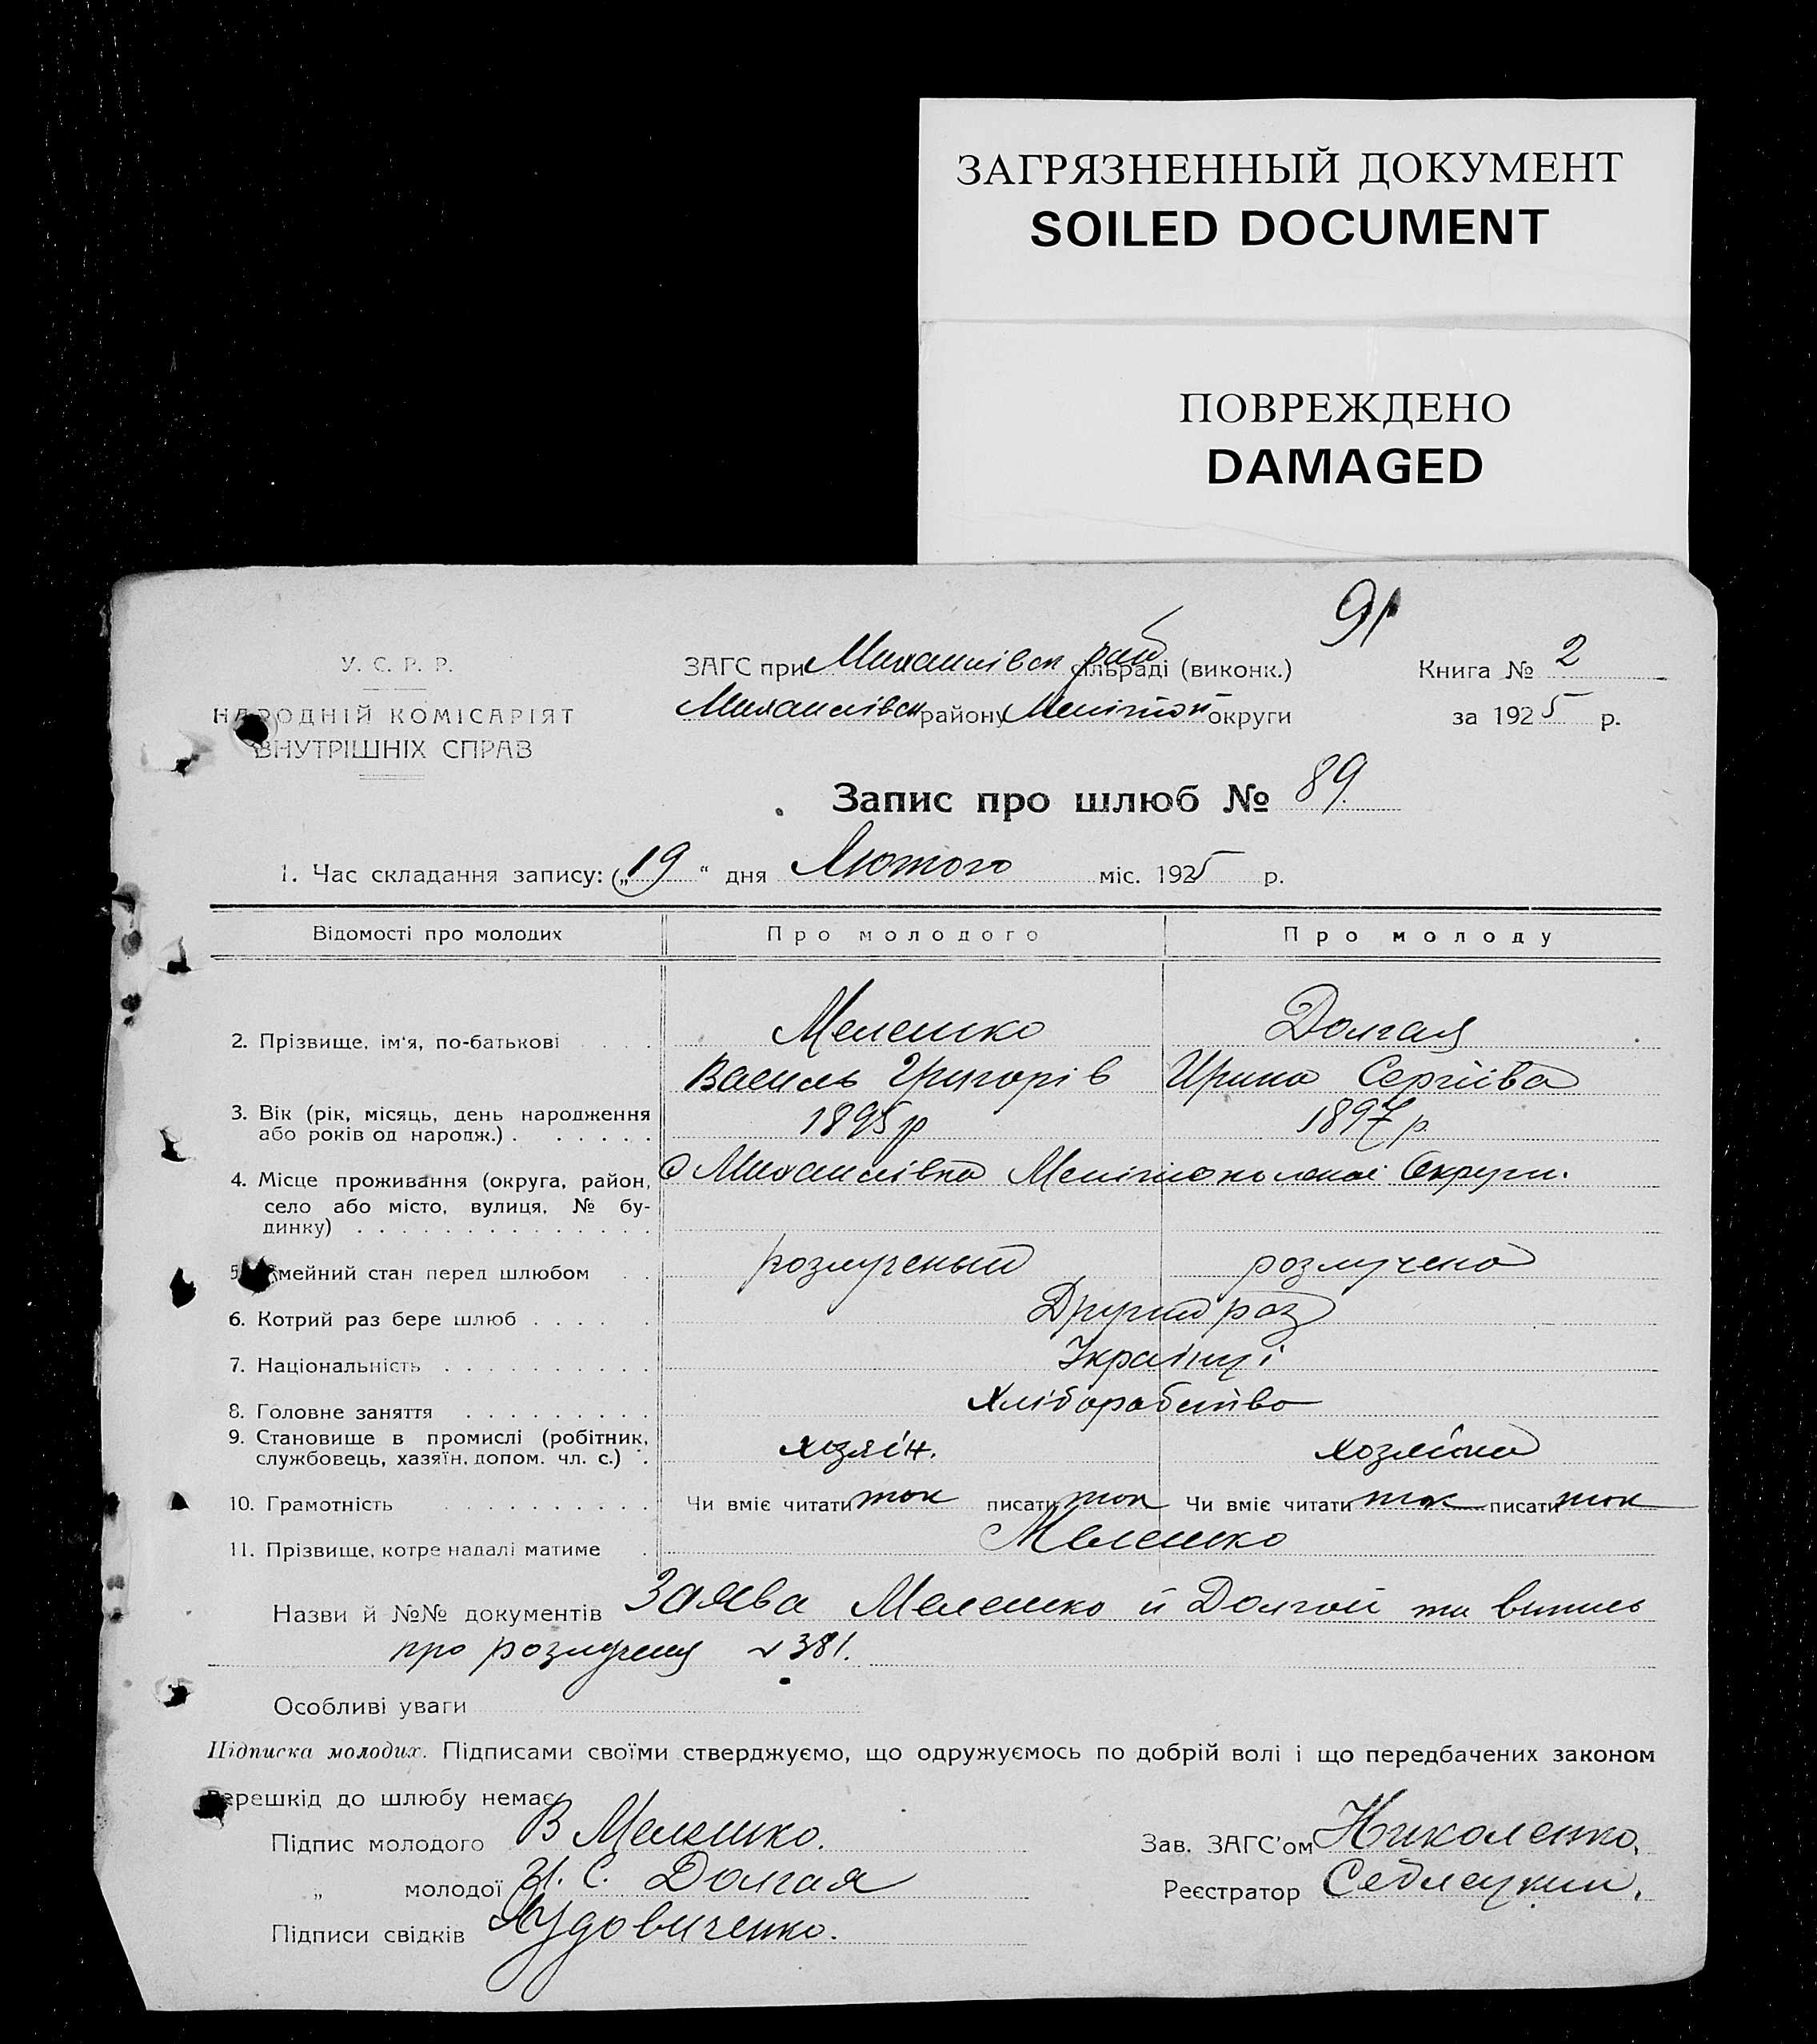 ЗАГРЯЗНЕННЫЙ ДОКУМЕНТ
SOILED DOCUMENT
ПОВРЕЖДЕНО
DAMAGED
91
У. С. Р. Р.
НАРОДНІЙ КОМІСАРІЯТ
ВНУТРІШНІХ СПРАВ
ЗАГС при Михайлівск рай сільраді (виконк.)
Михайлівск району Мелітоп округи
Книга № 2
за 1925 р.
Запис про шлюб № 89.
1. Час складання запису: („19“ дня Лютого міс. 1925 р.
Відомості про молодих Про молодого Про молоду
2. Прізвище, ім'я, по-батькові Мелешко Долгая
Василь Григорів Ирина Сергіїва
3. Вік (рік, місяць, день народження 1895 р 1897 р.
або років од народж.)
4. Місце проживання (округа, район, с Михайлівка Мелітопольскої Округи.
село або місто, вулиця, № бу-
динку)
5. мейний стан перед шлюбом розлученый розлучена
6. Котрий раз бере шлюб Другий раз
7. Національність Українці
8. Головне заняття Хліборобство
9. Становище в промислі (робітник, хозяїн. хозяйка
службовець, хазяїн, допом. чл. с.)
10. Грамотність Чи вміє читати так писати так Чи вміє читати так писати так
11. Прізвище, котре надалі матиме Мелешко
Назви й №№ документів Заява Мелешко й Долгой та випись
про розлучення № 381.
Особливі уваги
Підписка молодих. Підписами своїми стверджуємо, що одружуємось по добрій волі і що передбачених законом
перешкід до шлюбу немає.
Підпис молодого В Мелешко.
Зав. ЗАГС'ом Николенко,
„ молодої И. С. Долгая
Реєстратор Седлецкий.
Підписи свідків Худовиченко.